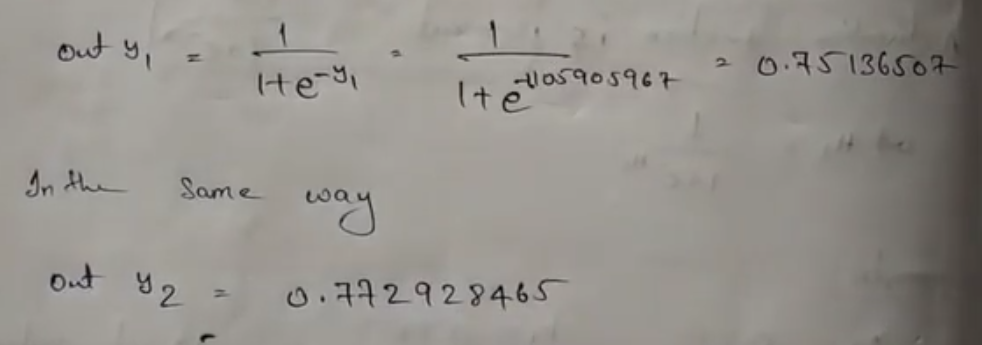 out y₁ = 1/(1+e^-y₁) = 1/(1+e^-1.105905967) = 0.75136507
In the same way
out y₂ = 0.772928465